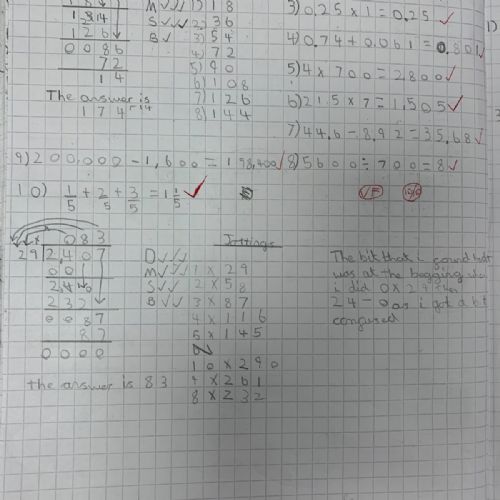 1 8 14
1 2 6
0 0 8 6
7 2
1 4
The answer is
1 7 4 r 14
M ✓✓ 1) 1 8
S ✓✓ 2) 3 6
B ✓ 3) 5 4
4) 7 2
5) 9 0
6) 1 0 8
7) 1 2 6
8) 1 4 4
3) 0.25 x 1 = 0.25 ✓
4) 0.74 + 0.061 = 0.801 ✓
5) 4 x 700 = 2800 ✓
6) 21.5 x 7 = 150.5 ✓
7) 44.6 - 8.92 = 35.68 ✓
9) 200,000 - 1,600 = 198,400 ✓
8) 5600 ÷ 700 = 8 ✓
10) 1/5 + 2/5 + 3/5 = 1 1/5 ✓
0 8 3
2 9 2,4 0 7
0 0
2 4 0
2 3 2
0 0 8 7
8 7
0 0 0 0
the answer is 83
D ✓✓
M ✓✓✓
S ✓✓
B ✓✓
Jottings
1 x 2 9
2 x 5 8
3 x 8 7
4 x 1 1 6
5 x 1 4 5
1 0 x 2 9 0
9 x 2 6 1
8 x 2 3 2
The bit that i found hard
was at the begging
i did 0 x 29
24 - 0 as i got a bit
confused
1)